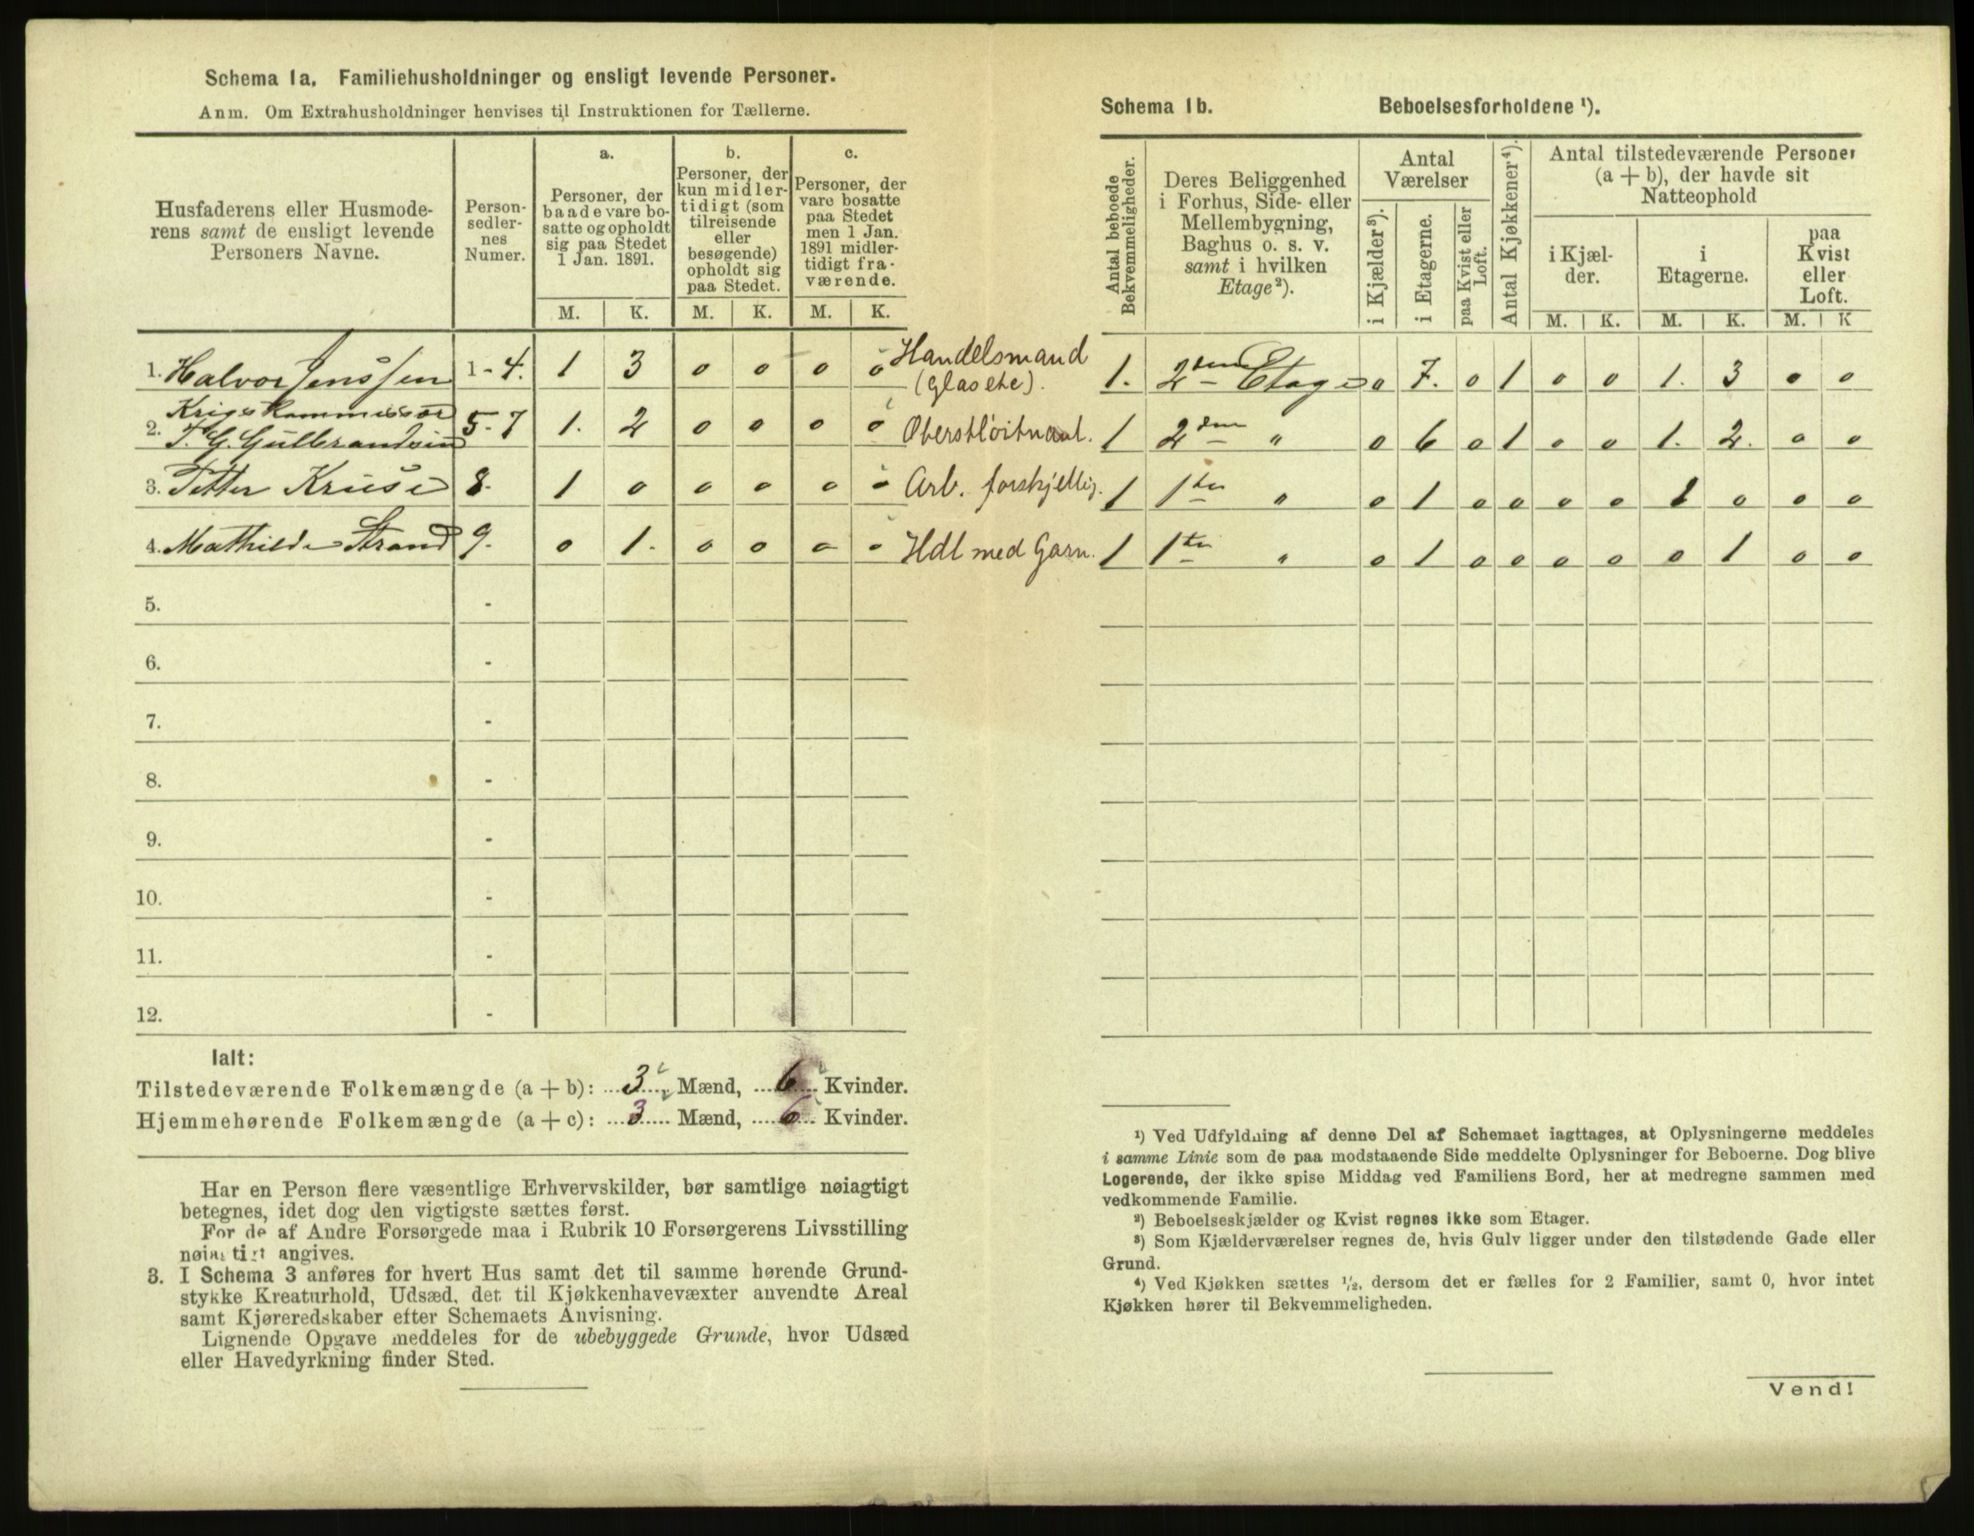 Schema 1a. Familiehusholdninger og ensligt levende Personer.
Anm. Om Extrahusholdninger henvises til Instruktionen for Tællerne.
Husfaderens eller Husmode-
rens samt de ensligt levende
Personers Navne.
Person-
sedler-
nes
Numer.
a.
Personer, der
baade vare bo-
satte og opholdt
sig paa Stedet
1 Jan. 1891.
b.
Personer, der
kun midler-
tidigt (som
tilreisende
eller
besøgende)
opholdt sig
paa Stedet.
c.
Personer, der
vare bosatte
paa Stedet
men 1 Jan.
1891 midler-
tidigt fra-
værende.
M. K. M. K. M. K.
1. Halvor Jenssen 1-4. 1 3 0 0 0 0 Handelsmand
(Glas etc).
Krigskommissær
2. T. G. Gulbrandsen 5-7 1. 2 0 0 0 0 Oberstløitnant.
3. Petter Kruse 8. 1 0 0 0 0 0 Arb. forskjellig.
4. Mathilde Strand 9. 0 1. 0 0 0 0 Hdl med Garn.
5. -
6. -
7. -
8. -
9. -
10. -
11. -
12. -
Ialt:
Tilstedeværende Folkemængde (a + b): 3 Mænd, 6 Kvinder.
Hjemmehørende Folkemængde (a + c): 3 Mænd, 6 Kvinder.
Har en Person flere væsentlige Erhvervskilder, bør samtlige nøiagtigt
betegnes, idet dog den vigtigste sættes først.
For de af Andre Forsørgede maa i Rubrik 10 Forsørgerens Livsstilling
nøiagtigt angives.
3. I Schema 3 anføres for hvert Hus samt det til samme hørende Grund-
stykke Kreaturhold, Udsæd, det til Kjøkkenhavevæxter anvendte Areal
samt Kjøreredskaber efter Schemaets Anvisning.
Lignende Opgave meddeles for de ubebyggede Grunde, hvor Udsæd
eller Havedyrkning finder Sted.
Schema 1b. Beboelsesforholdene ¹).
Antal beboede
Bekvemmeligheder.
Deres Beliggenhed
i Forhus, Side- eller
Mellembygning,
Baghus o. s. v.
samt i hvilken
Etage²).
Antal
Værelser
i Kjælder³).
i Etagerne.
paa Kvist eller
Loft.
Antal Kjøkkener⁴).
Antal tilstedeværende Personer
(a + b), der havde sit
Natteophold
i Kjæl-
der.
i
Etagerne.
paa
Kvist
eller
Loft.
M. K. M. K. M. K
1. 2den Etage 0 7. 0 1 0 0 1. 3 0 0
1 2den " 0 6 0 1 0 0 1. 2. 0 0
1 1ste " 0 1 0 0 0 0 1 0 0 0
1 1ste " 0 1 0 0 0 0 0 1 0 0
¹) Ved Udfyldning af denne Del af Schemaet iagttages, at Oplysningerne meddeles
i samme Linie som de paa modstaaende Side meddelte Oplysninger for Beboerne. Dog blive
Logerende, der ikke spise Middag ved Familiens Bord, her at medregne sammen med
vedkommende Familie.
²) Beboelseskjælder og Kvist regnes ikke som Etager.
³) Som Kjælderværelser regnes de, hvis Gulv ligger under den tilstødende Gade eller
Grund.
⁴) Ved Kjøkken sættes ½, dersom det er fælles for 2 Familier, samt 0, hvor intet
Kjøkken hører til Bekvemmeligheden.
Vend!